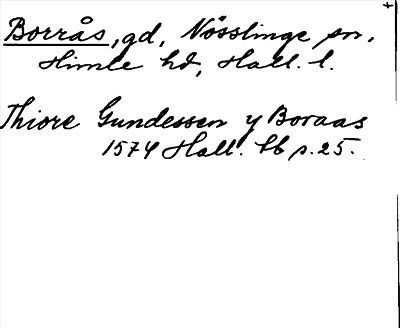 Borrås, gd, Nösslinge sn,
Himle hd, Hall. l.
Thiore Gundessen y Boraas
1574 Hall. lb s. 25.